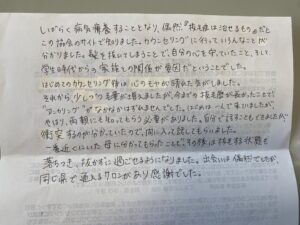 しばらく病気療養することとなり、偶然"抜毛症は治せるもの"だと
この協会のサイトで知りました。カウンセリングに行っていろんなことが
分かりました。髪を抜いてしまうことで、自分の心を守っていたこと、そして
学生時代からの家族との関係が要因だということでした。
はじめてのカウンセリング後は心のモヤが晴れた気がしました。
それから、少しづつ毛髪が増えましたが、今までの抜毛歴が長かったことで
"マニキリング"がなかなかはずれませんでした。はじめは一人で来ていましたが、
やはり、両親にも知ってもらう必要がありました。自分で話すことでもしましたが
衝突するのが分かっていたので、間に入って話してもらいました。
一番近くにいた母に分かってもらったことで、その後は抜毛する状態も
落ちつき、抜かずに過ごせるようになりました。出会いは偶然でしたが、
同じ県で通えるサロンがあり感謝でした。